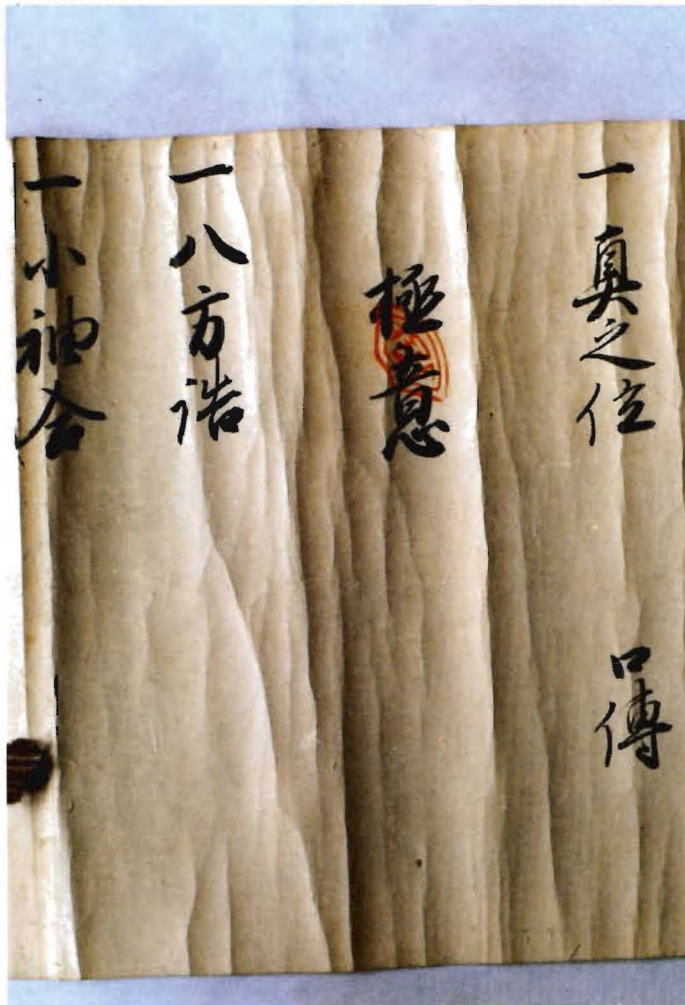 一 真之位 口傳
極意
一 八方詰
一 小袖合